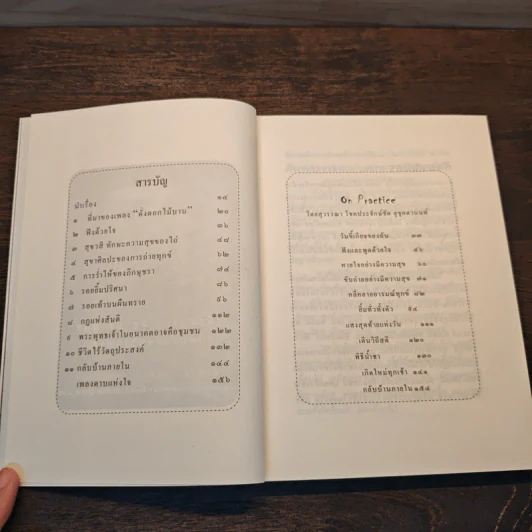 สารบัญ
นำเรื่อง ๑๔
๑ ที่มาของเพลง “ดั่งดอกไม้บาน” ๒๐
๒ ฟังด้วยใจ ๓๖
๓ สุขวสี ทักษะความสุขของไก่ ๔๗
๔ สุขาศิลปะของการถ่ายทุกข์ ๖๒
๕ การร่ำไห้ของภิกษุชรา ๗๔
๖ รอยยิ้มปริศนา ๘๖
๗ รอยเท้าบนผืนทราย ๙๖
๘ กฎแห่งสันติ ๑๑๔
๙ พระพุทธเจ้าในอนาคตอาจคือชุมชน ๑๒๒
๑๐ ชีวิตไร้วัตถุประสงค์ ๑๓๒
๑๑ กลับบ้านภายใน ๑๔๔
เพลงดาบแห่งใจ ๑๕๖
On Practice
โดยสุวรรณา โชคประจักษ์ชัด อุชุคตานนท์
วันขี้เกียจของฉัน ๓๓
ฟังและพูดด้วยใจ ๔๖
หายใจอย่างมีความสุข ๖๐
ขับถ่ายอย่างมีความสุข ๗๑
คลี่คลายอารมณ์ทุกข์ ๘๒
ยิ้มพิ้งพิ้ง ๙๔
แสงสุดท้ายแห่งวัน ๑๑๑
เดินวิถีสติ ๑๒๐
พิธีน้ำชา ๑๓๐
เกิดใหม่ทุกเช้า ๑๔๑
กลับบ้านภายใน ๑๕๔